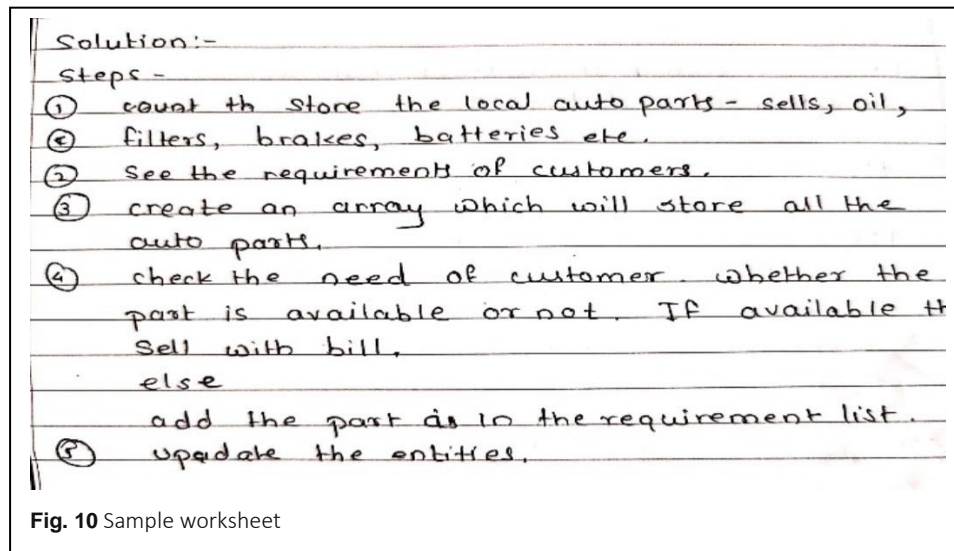 Solution:-
Steps -
① count th store the local auto parts - sells, oil,
② filters, brakes, batteries etc.
② See the requirements of customers.
③ create an array which will store all the
auto parts.
④ check the need of customer whether the
part is available or not. If available th
Sell with bill.
else
add the part is in the requirement list.
⑤ upadate the entities.
Fig. 10 Sample worksheet